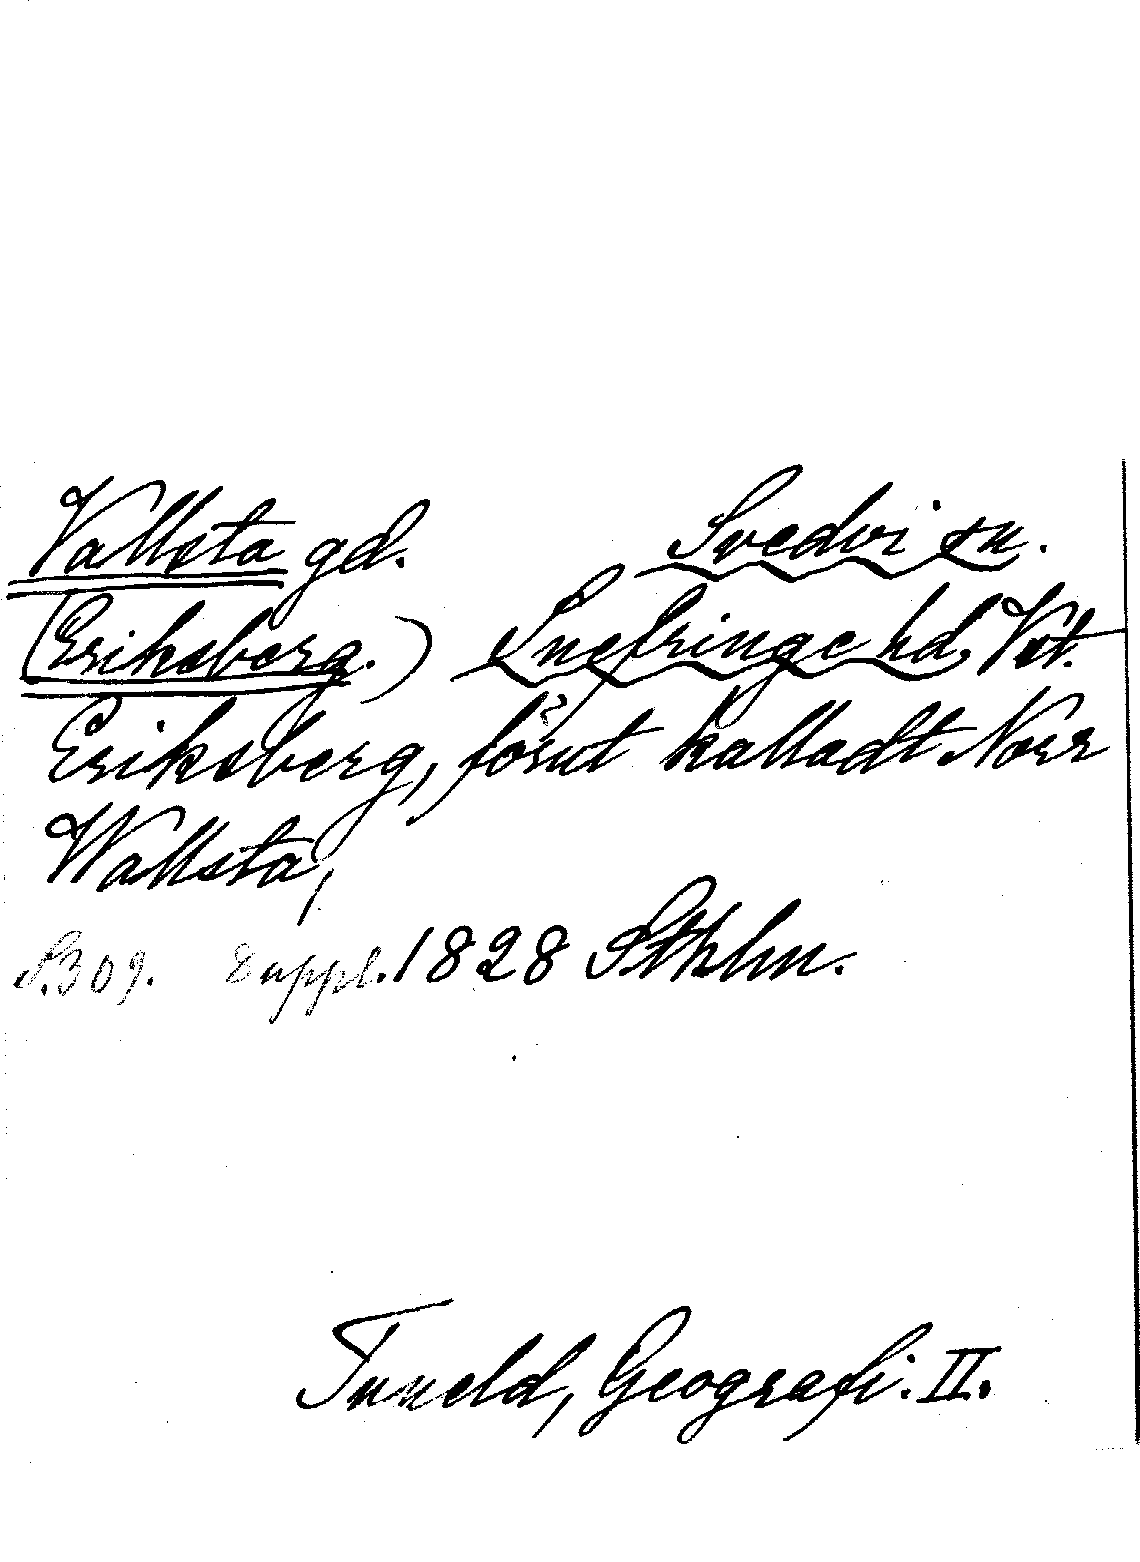 Vallsta gd. Svedvi sn.
(Eriksberg.) Snefringe hd. Vst.
Eriksberg, förut kalladt Norr
Wallsta,
S. 309. Suppl. 1828 Sthlm.
Tuneld, Geografi. II.